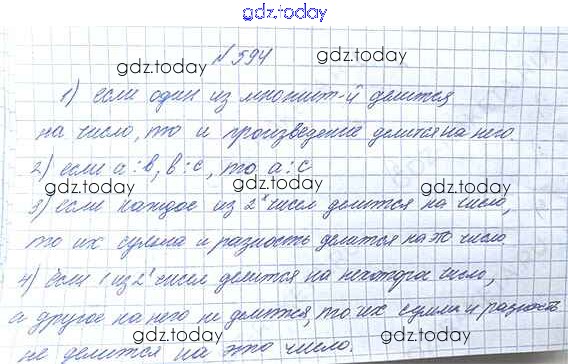 gdz.today
№ 594
gdz.today gdz.today
1) если один из множит-й делится
на число, то и произведение делится на него.
gdz.today gdz.today
2) если a ⋮ в, в ⋮ с, то а ⋮ с
gdz.today gdz.today gdz.today
3) если каждое из 2ˣ чисел делится на число,
то их сумма и разность делится на это число
gdz.today gdz.today
4) если 1 из 2ˣ чисел делится на некоторое число,
а другое на него не делится, то их сумма и разность
gdz.today gdz.today gdz.today
не делится на это число.